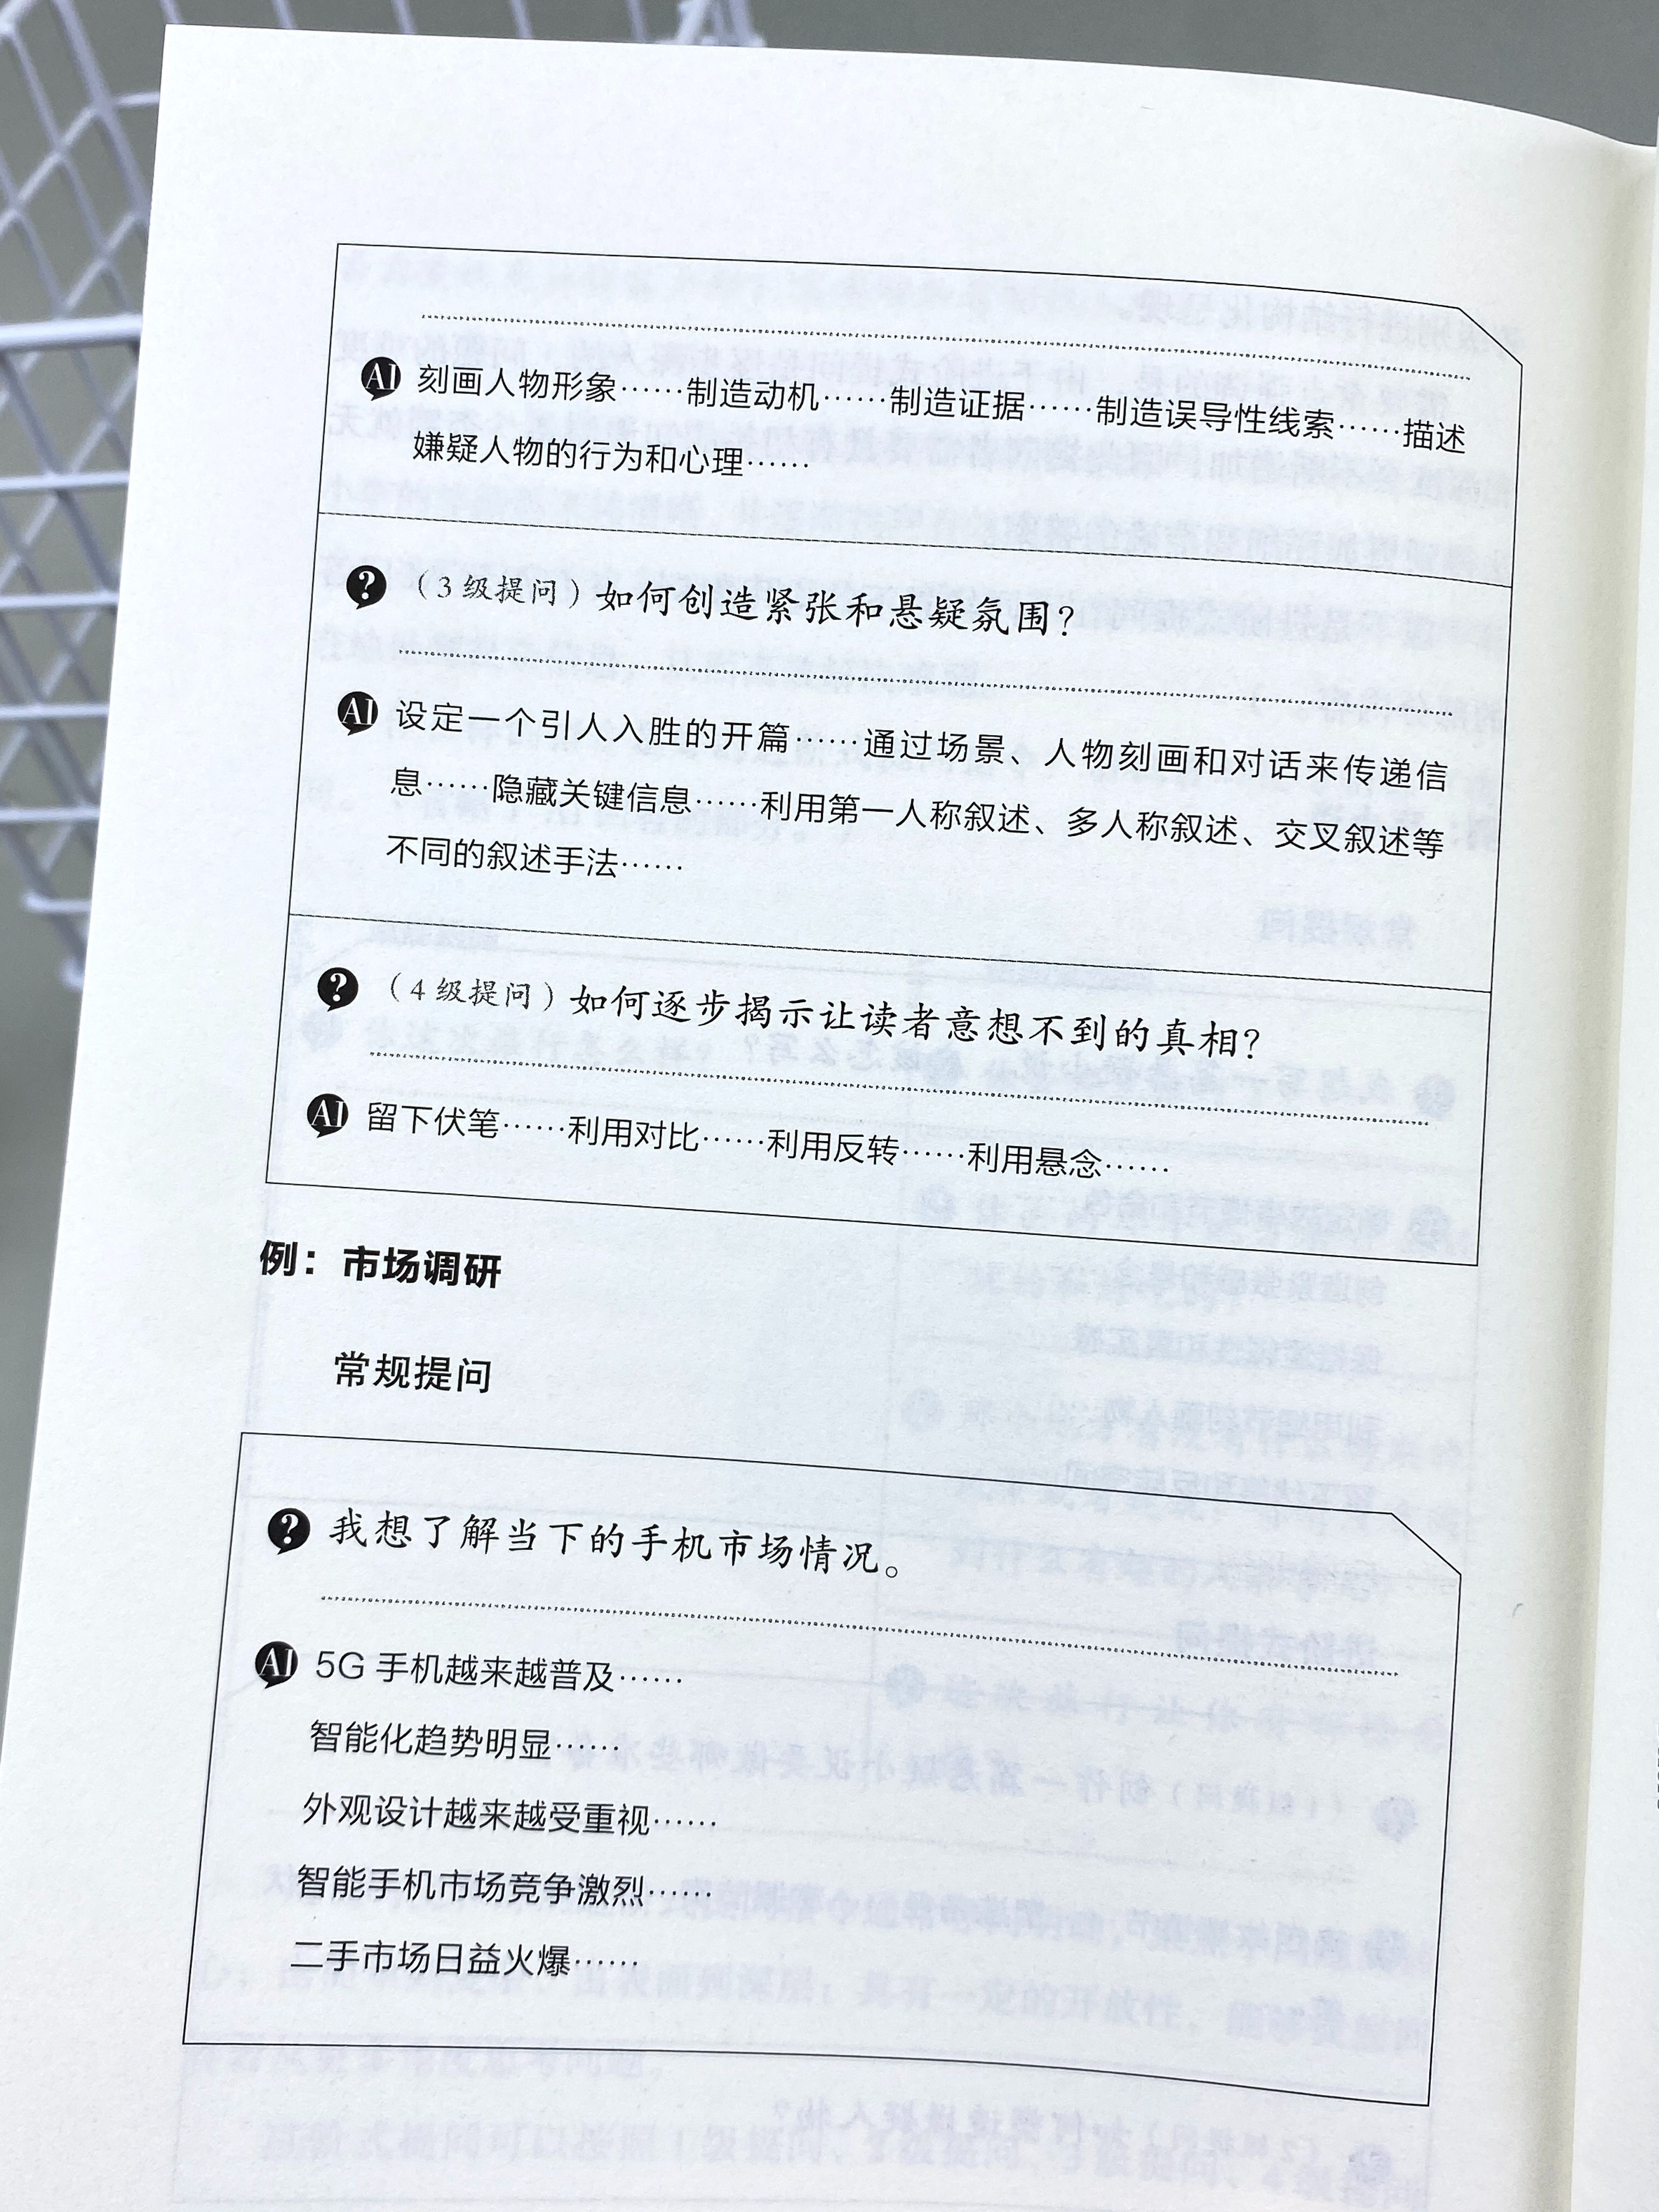 AI 刻画人物形象……制造动机……制造证据……制造误导性线索……描述
嫌疑人物的行为和心理……
? （3 级提问）如何创造紧张和悬疑氛围？
AI 设定一个引人入胜的开篇……通过场景、人物刻画和对话来传递信
息……隐藏关键信息……利用第一人称叙述、多人称叙述、交叉叙述等
不同的叙述手法……
? （4 级提问）如何逐步揭示让读者意想不到的真相？
AI 留下伏笔……利用对比……利用反转……利用悬念……
例：市场调研
常规提问
? 我想了解当下的手机市场情况。
AI 5G 手机越来越普及……
智能化趋势明显……
外观设计越来越受重视……
智能手机市场竞争激烈……
二手市场日益火爆……